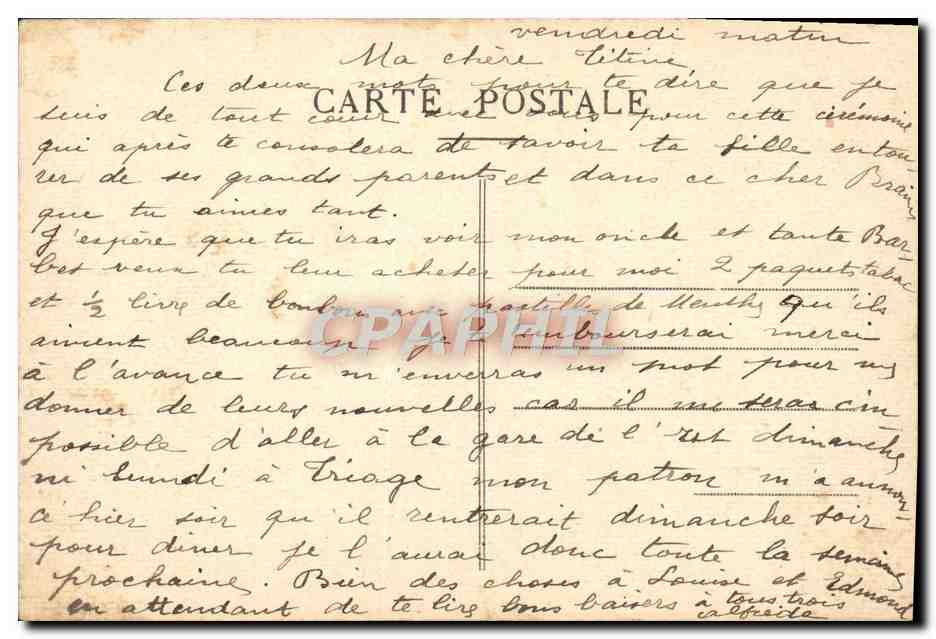 vendredi matin
Ma chère Titine
Ces deux mots pour te dire que je
CARTE POSTALE
suis de tout coeur avec vous pour cette cérémoine
qui après te consolera de savoir ta fille entou-
rer de ses grands parents et dans ce cher Brain
que tu aimes tant.
J'espère que tu iras voir mon oncle et tante Bar-
bet veux tu leur acheter pour moi 2 paquets tabac
et ½ livre de bonbons pastilles de Menthe qu'ils
CPAPHIL
aiment beaucoup je te rembourserai merci
à l'avance tu m'enverras un mot pour me
donner de leurs nouvelles car il me seras im
possible d'aller à la gare de l'Est dimanche
ni lundi à Triage mon patron m'a annon-
cé hier soir qu'il rentrerait dimanche soir
pour diner je l'aurai donc toute la semaine
prochaine. Bien des choses à Louise et Edmond
en attendant de te lire bons baisers à tous trois
Alfreda